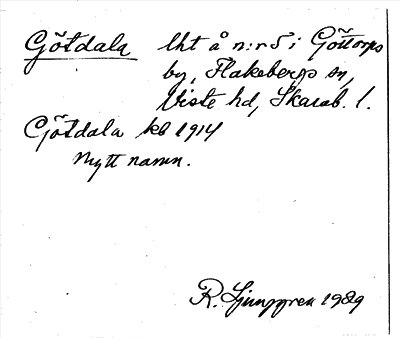 Götdala lht å n:r 5 i Göttorps
by, Flakebergs sn,
Viste hd, Skarab. l.
Götdala kb 1914
Nytt namn.
R. Ljunggren 1989